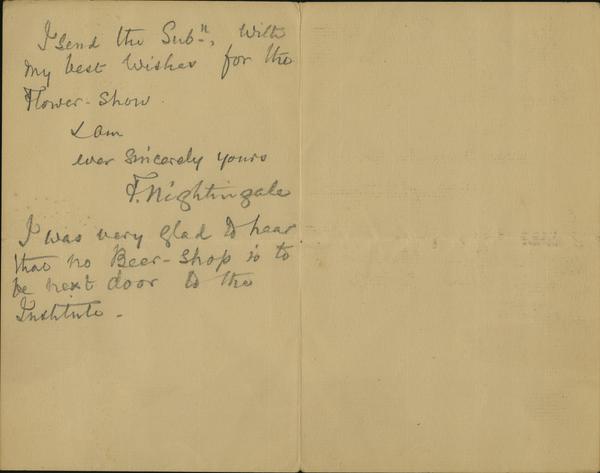 I send the Subⁿ, with
my best Wishes for the
Flower-Show.
I am
ever sincerely yours
F. Nightingale
I was very glad to hear
that no Beer-Shop is to
be next door to the
Institute -